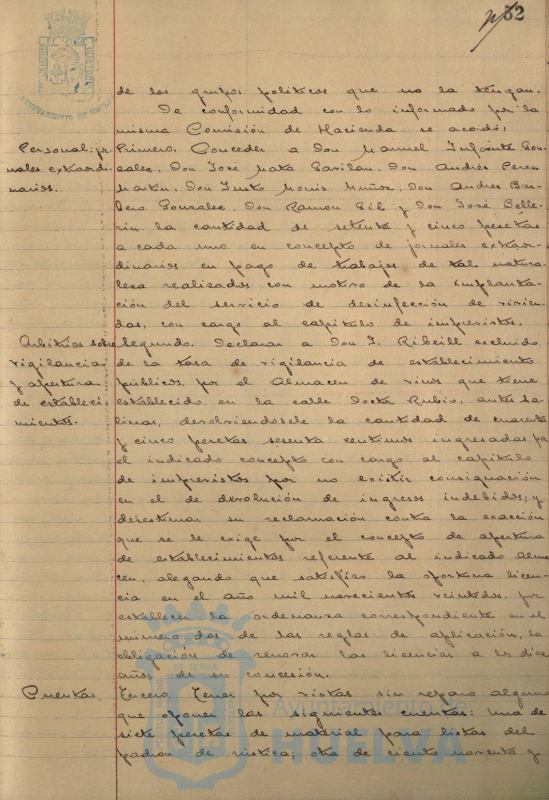 52
de los grupos politicos que no la tengan.
De conformidad con lo informado por la
misma Comisión de Hacienda se acordó:
Personal: jor-
nales extraordi-
narios.
Primero. Conceder a Don Manuel Infante Gon-
zalez, Don José Mata Gavilan, Don Andrés Perez
Martin, Don Justo Muñoz, Don Andres Bar-
bero Gonzalez, Don Ramon Gil y Don José Belle-
rin la cantidad de setenta y cinco pesetas
a cada uno en concepto de jornales extraor-
dinarios en pago de trabajos de tal natura-
leza realizados con motivo de la implanta-
ción del servicio de desinfección de vivien-
das, con cargo al capitulo de imprevistos.
Arbitrios sobre
vigilancia
y apertura
de estableci-
mientos.
Segundo. Declarar a Don J. Ribeill excluido
de la tasa de vigilancia de establecimiento
públicos, por el Almacen de vinos que tiene
establecido en la calle Doctor Rubio, antes Sa-
linas, devolviendosele la cantidad de cuarenta
y cinco pesetas sesenta centimos ingresadas por
el indicado concepto con cargo al capitulo
de imprevistos por no existir consignación
en el de devolución de ingresos indebidos; y
desestimar su reclamación contra la exacción
que se le exige por el concepto de apertura
de establecimientos referente al indicado Alma-
cen, alegando que satisfizo la oportuna licen-
cia en el año mil novecientos veintidos, por
establecer la ordenanza correspondiente en el
numero dos de las reglas de aplicación, la
obligación de renovar las licencias a los diez
años de su concesión.
Cuentas.
Tercero. Tener por vistas sin reparo alguno
que oponer las siguientes cuentas: Una de
siete pesetas de material para listas del
padrón de rústica; otra de ciento noventa y
Ayuntamiento de
HUELVA